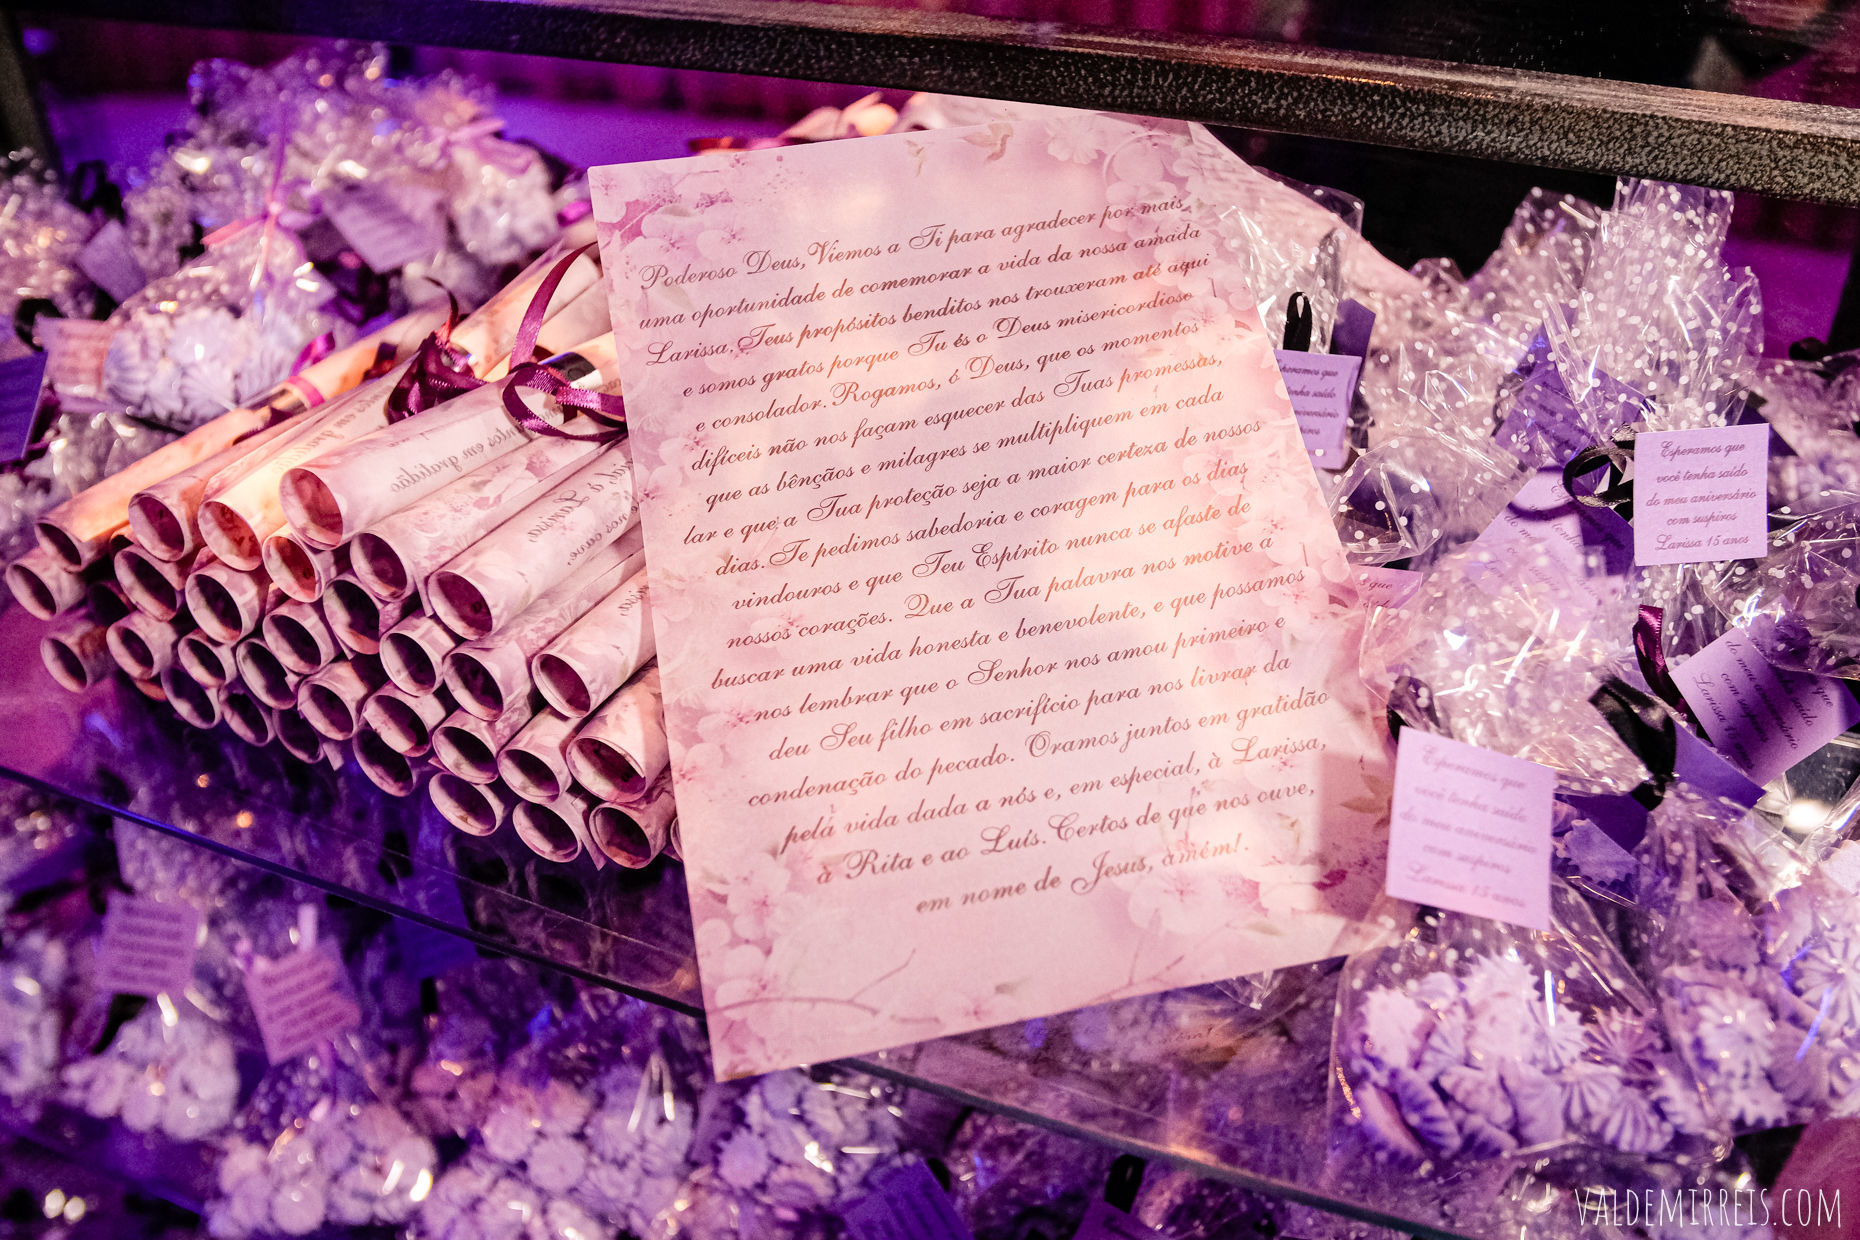 Poderoso Deus, Viemos a Ti para agradecer por mais
uma oportunidade de comemorar a vida da nossa amada
Larissa. Teus propósitos benditos nos trouxeram até aqui
e somos gratos porque Tu és o Deus misericordioso
e consolador. Rogamos, ó Deus, que os momentos
difíceis não nos façam esquecer das Tuas promessas,
que as bênçãos e milagres se multipliquem em cada
lar e que a Tua proteção seja a maior certeza de nossos
dias. Te pedimos sabedoria e coragem para os dias
vindouros e que Teu Espírito nunca se afaste de
nossos corações. Que a Tua palavra nos motive à
buscar uma vida honesta e benevolente, e que possamos
nos lembrar que o Senhor nos amou primeiro e
deu Seu filho em sacrifício para nos livrar da
condenação do pecado. Oramos juntos em gratidão
pela vida dada a nós e, em especial, à Larissa,
à Rita e ao Luís. Certos de que nos ouve,
em nome de Jesus, amém!.
em gratidão
à Larissa,
nos ouve,
Esperamos que
você tenha saído
do meu aniversário
com suspiros
Larissa 15 anos
Esperamos que
você tenha saído
do meu aniversário
com suspiros
Larissa 15 anos
VALDEMIRREIS.COM